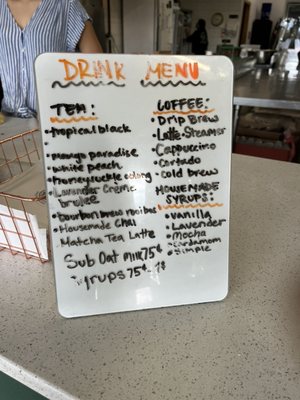 DRINK MENU
TEA:
•tropical black
•
•mango paradise
•white peach
•honeysuckle oolong
•Lavender Crème
brulee
•bourbon brew rooibos
•Housemade Chai
Matcha Tea Latte
Sub Oat milk 75¢
Syrups 75¢
COFFEE:
•Drip Brew
•Latte Steamer
•Cappuccino
•Cortado
•Cold brew
HOUSEMADE
SYRUPS:
•Vanilla
•Lavender
•Mocha
•Cardamom
•Simple